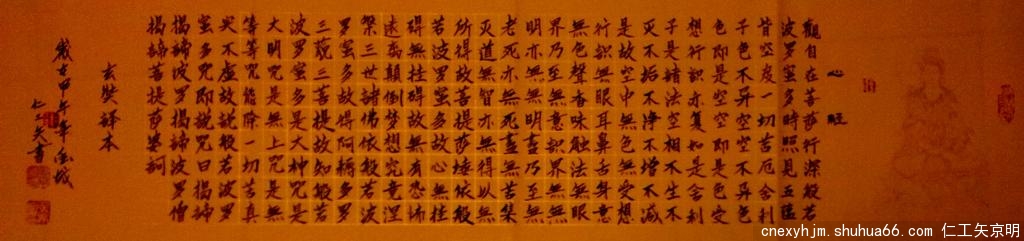 心經
觀自在菩萨行深般若
波罗蜜多時照見五蕴
皆空度一切苦厄舍利
子色不异空空不异色
色即是空空即是色受
想行识亦复如是舍利
子是諸法空相不生不
灭不垢不净不增不减
是故空中無色無受想
行识無眼耳鼻舌身意
無色聲香味触法無眼
界乃至無意识界無無
明亦無無明盡乃至無
老死亦無老死盡無苦集
灭道無智亦無得以無
所得故菩提萨埵依般
若波罗蜜多故心無挂
碍無挂碍故無有恐怖
远离顛倒夢想究竟涅
槃三世諸佛依般若波
罗蜜多故得阿耨多罗
三藐三菩提故知般若
波罗蜜多是大神咒是
大明咒是無上咒是無
等等咒能除一切苦真
实不虚故説般若波罗
蜜多咒即説咒曰揭諦
揭諦波罗揭諦波罗僧
揭諦菩提萨婆訶
玄奘译本
歲在甲午年
仁工矢書
cnexyhjm.shuhua66.com 仁工矢京明